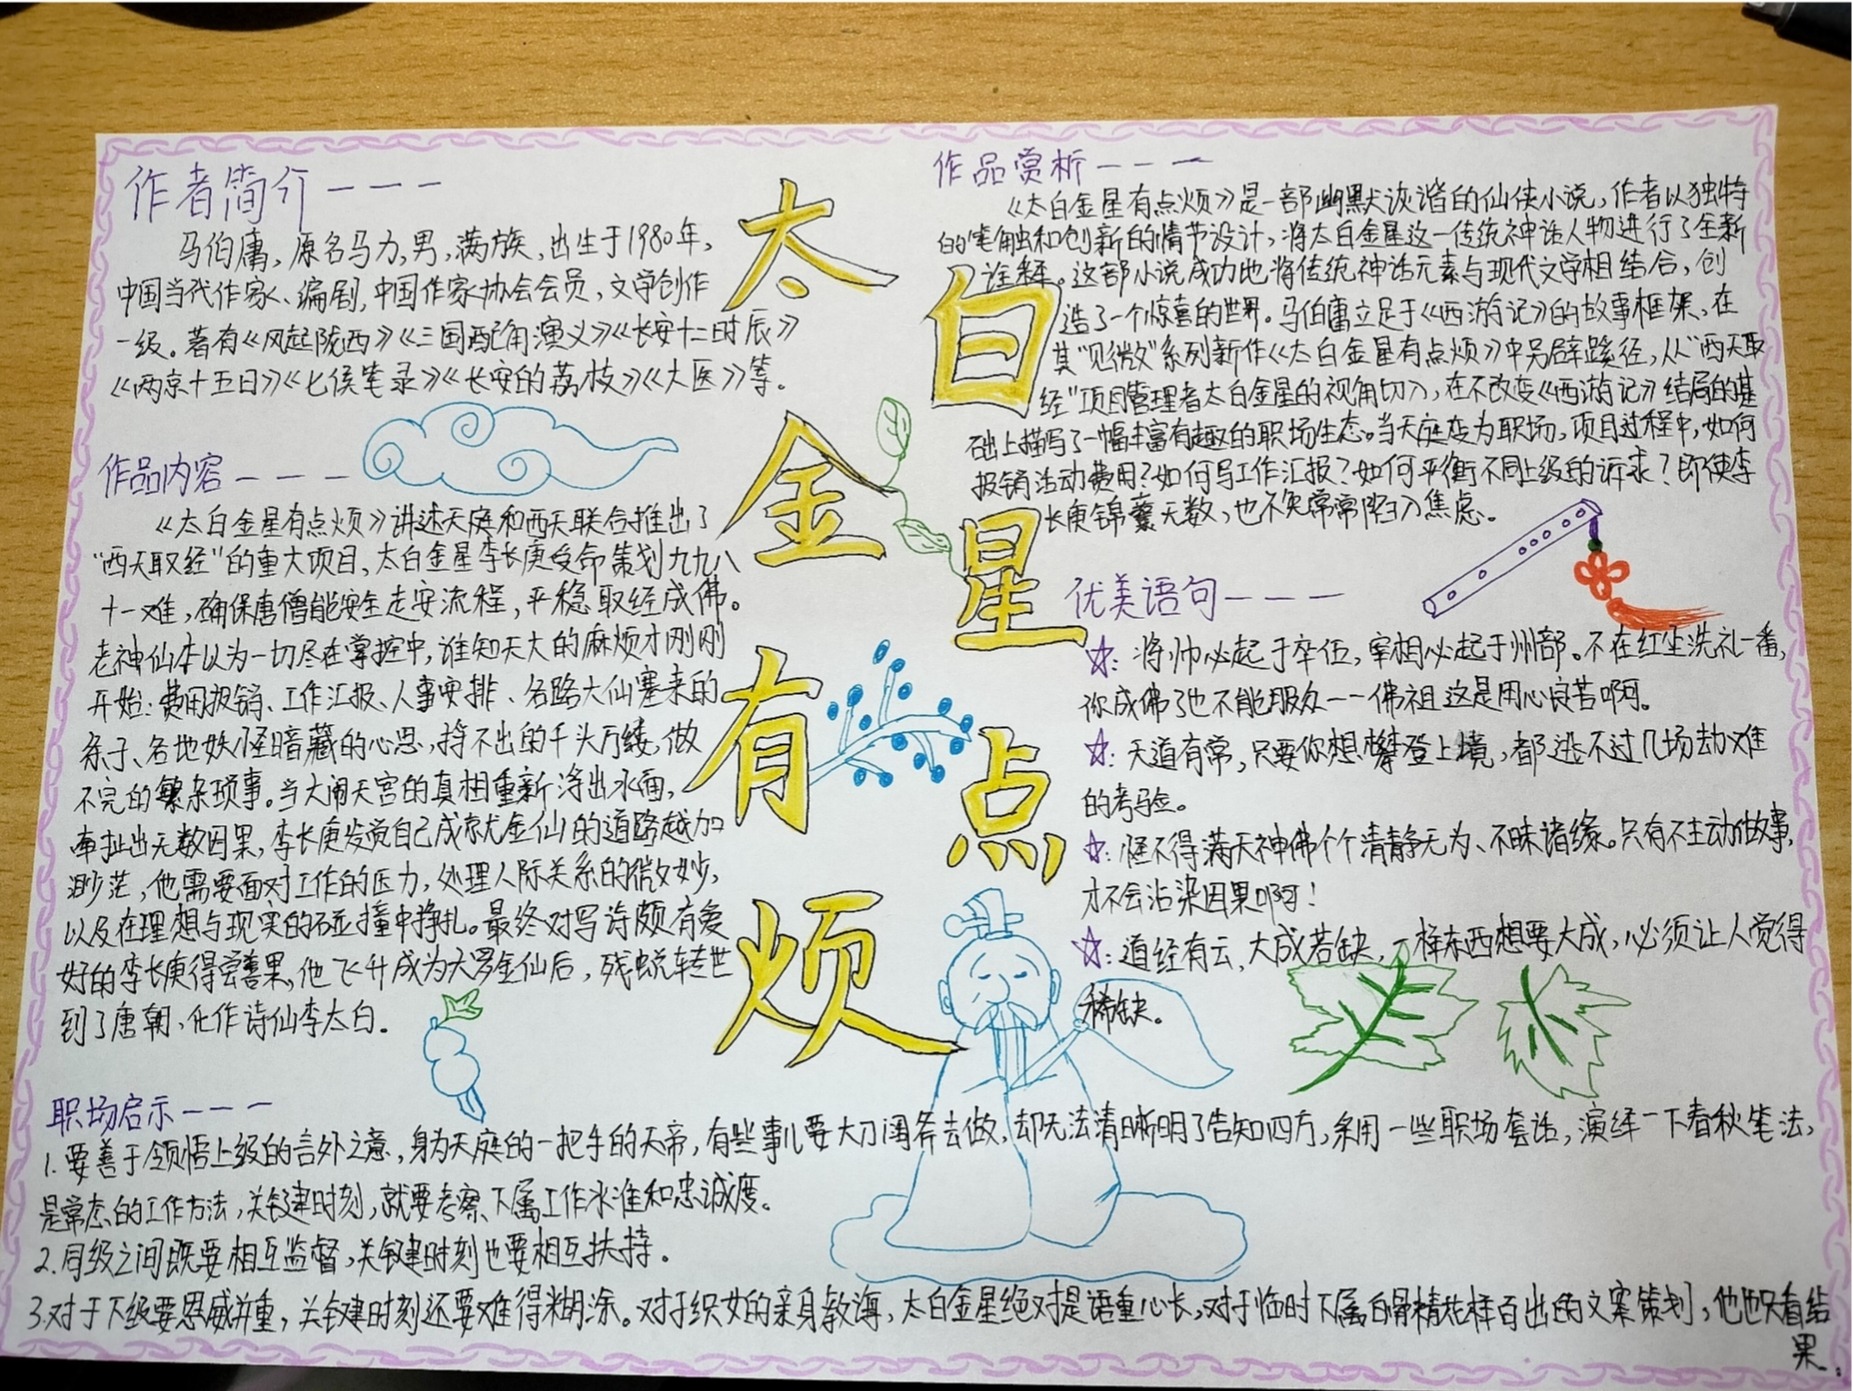 太白金星有点烦
作者简介---
马伯庸,原名马力,男,满族,出生于1980年,
中国当代作家、编剧,中国作家协会会员,文学创作
一级。著有《风起陇西》《三国配角演义》《长安十二时辰》
《两京十五日》《七侯笔录》《长安的荔枝》《大医》等。
作品内容---
《太白金星有点烦》讲述天庭和西天联合推出了
“西天取经”的重大项目,太白金星李长庚受命策划九九八
十一难,确保唐僧能安全走安流程,平稳取经成佛。
老神仙本以为一切尽在掌控中,谁知天大的麻烦才刚刚
开始:费用报销、工作汇报、人事安排、各路大仙塞来的
条子、各地妖怪暗藏的心思,捋不出的千头万绪,做
不完的繁杂琐事。当大闹天宫的真相重新浮出水面,
牵扯出无数因果,李长庚发觉自己成就金仙的道路越加
渺茫,他需要面对工作的压力,处理人际关系的微妙,
以及在理想与现实的碰撞中挣扎。最终对写诗颇有爱
好的李长庚得尝善果,他飞升成为大罗金仙后,残蜕转世
到了唐朝,化作诗仙李太白。
作品赏析---
《太白金星有点烦》是一部幽默诙谐的仙侠小说,作者以独特
的笔触和创新的情节设计,将太白金星这一传统神话人物进行了全新
诠释。这部小说成功地将传统神话元素与现代文学相结合,创
造了一个惊喜的世界。马伯庸立足于《西游记》的故事框架,在
其“见微”系列新作《太白金星有点烦》中另辟蹊径,从“西天取
经”项目管理者太白金星的视角切入,在不改变《西游记》结局的基
础上描写了一幅丰富有趣的职场生态。当天庭变为职场,项目过程中,如何
报销活动费用?如何写工作汇报?如何平衡不同上级的诉求?即使李
长庚锦囊无数,也不免常常陷入焦虑。
优美语句---
☆:将帅必起于卒伍,宰相必起于州部。不在红尘洗礼一番,
你成佛了也不能服众——佛祖这是用心良苦啊。
☆:天道有常,只要你想攀登上境,都逃不过几场劫难
的考验。
☆:怪不得满天神佛个个清静无为、不昧诸缘。只有不主动做事,
才不会沾染因果啊!
☆:道经有云,大成若缺,一样东西想要大成,必须让人觉得
稀缺。
职场启示---
1.要善于领悟上级的言外之意,身为天庭的一把手的天帝,有些事儿要大刀阔斧去做,却无法清晰明了告知四方,采用一些职场套话,演绎一下春秋笔法,
是常态的工作方法,关键时刻,就要考察下属工作水准和忠诚度。
2.同级之间既要相互监督,关键时刻也要相互扶持。
3.对于下级要恩威并重,关键时刻还要难得糊涂。对于织女的亲身教诲,太白金星绝对是语重心长,对于临时下属白骨精花样百出的文案策划,他也只看结
果。